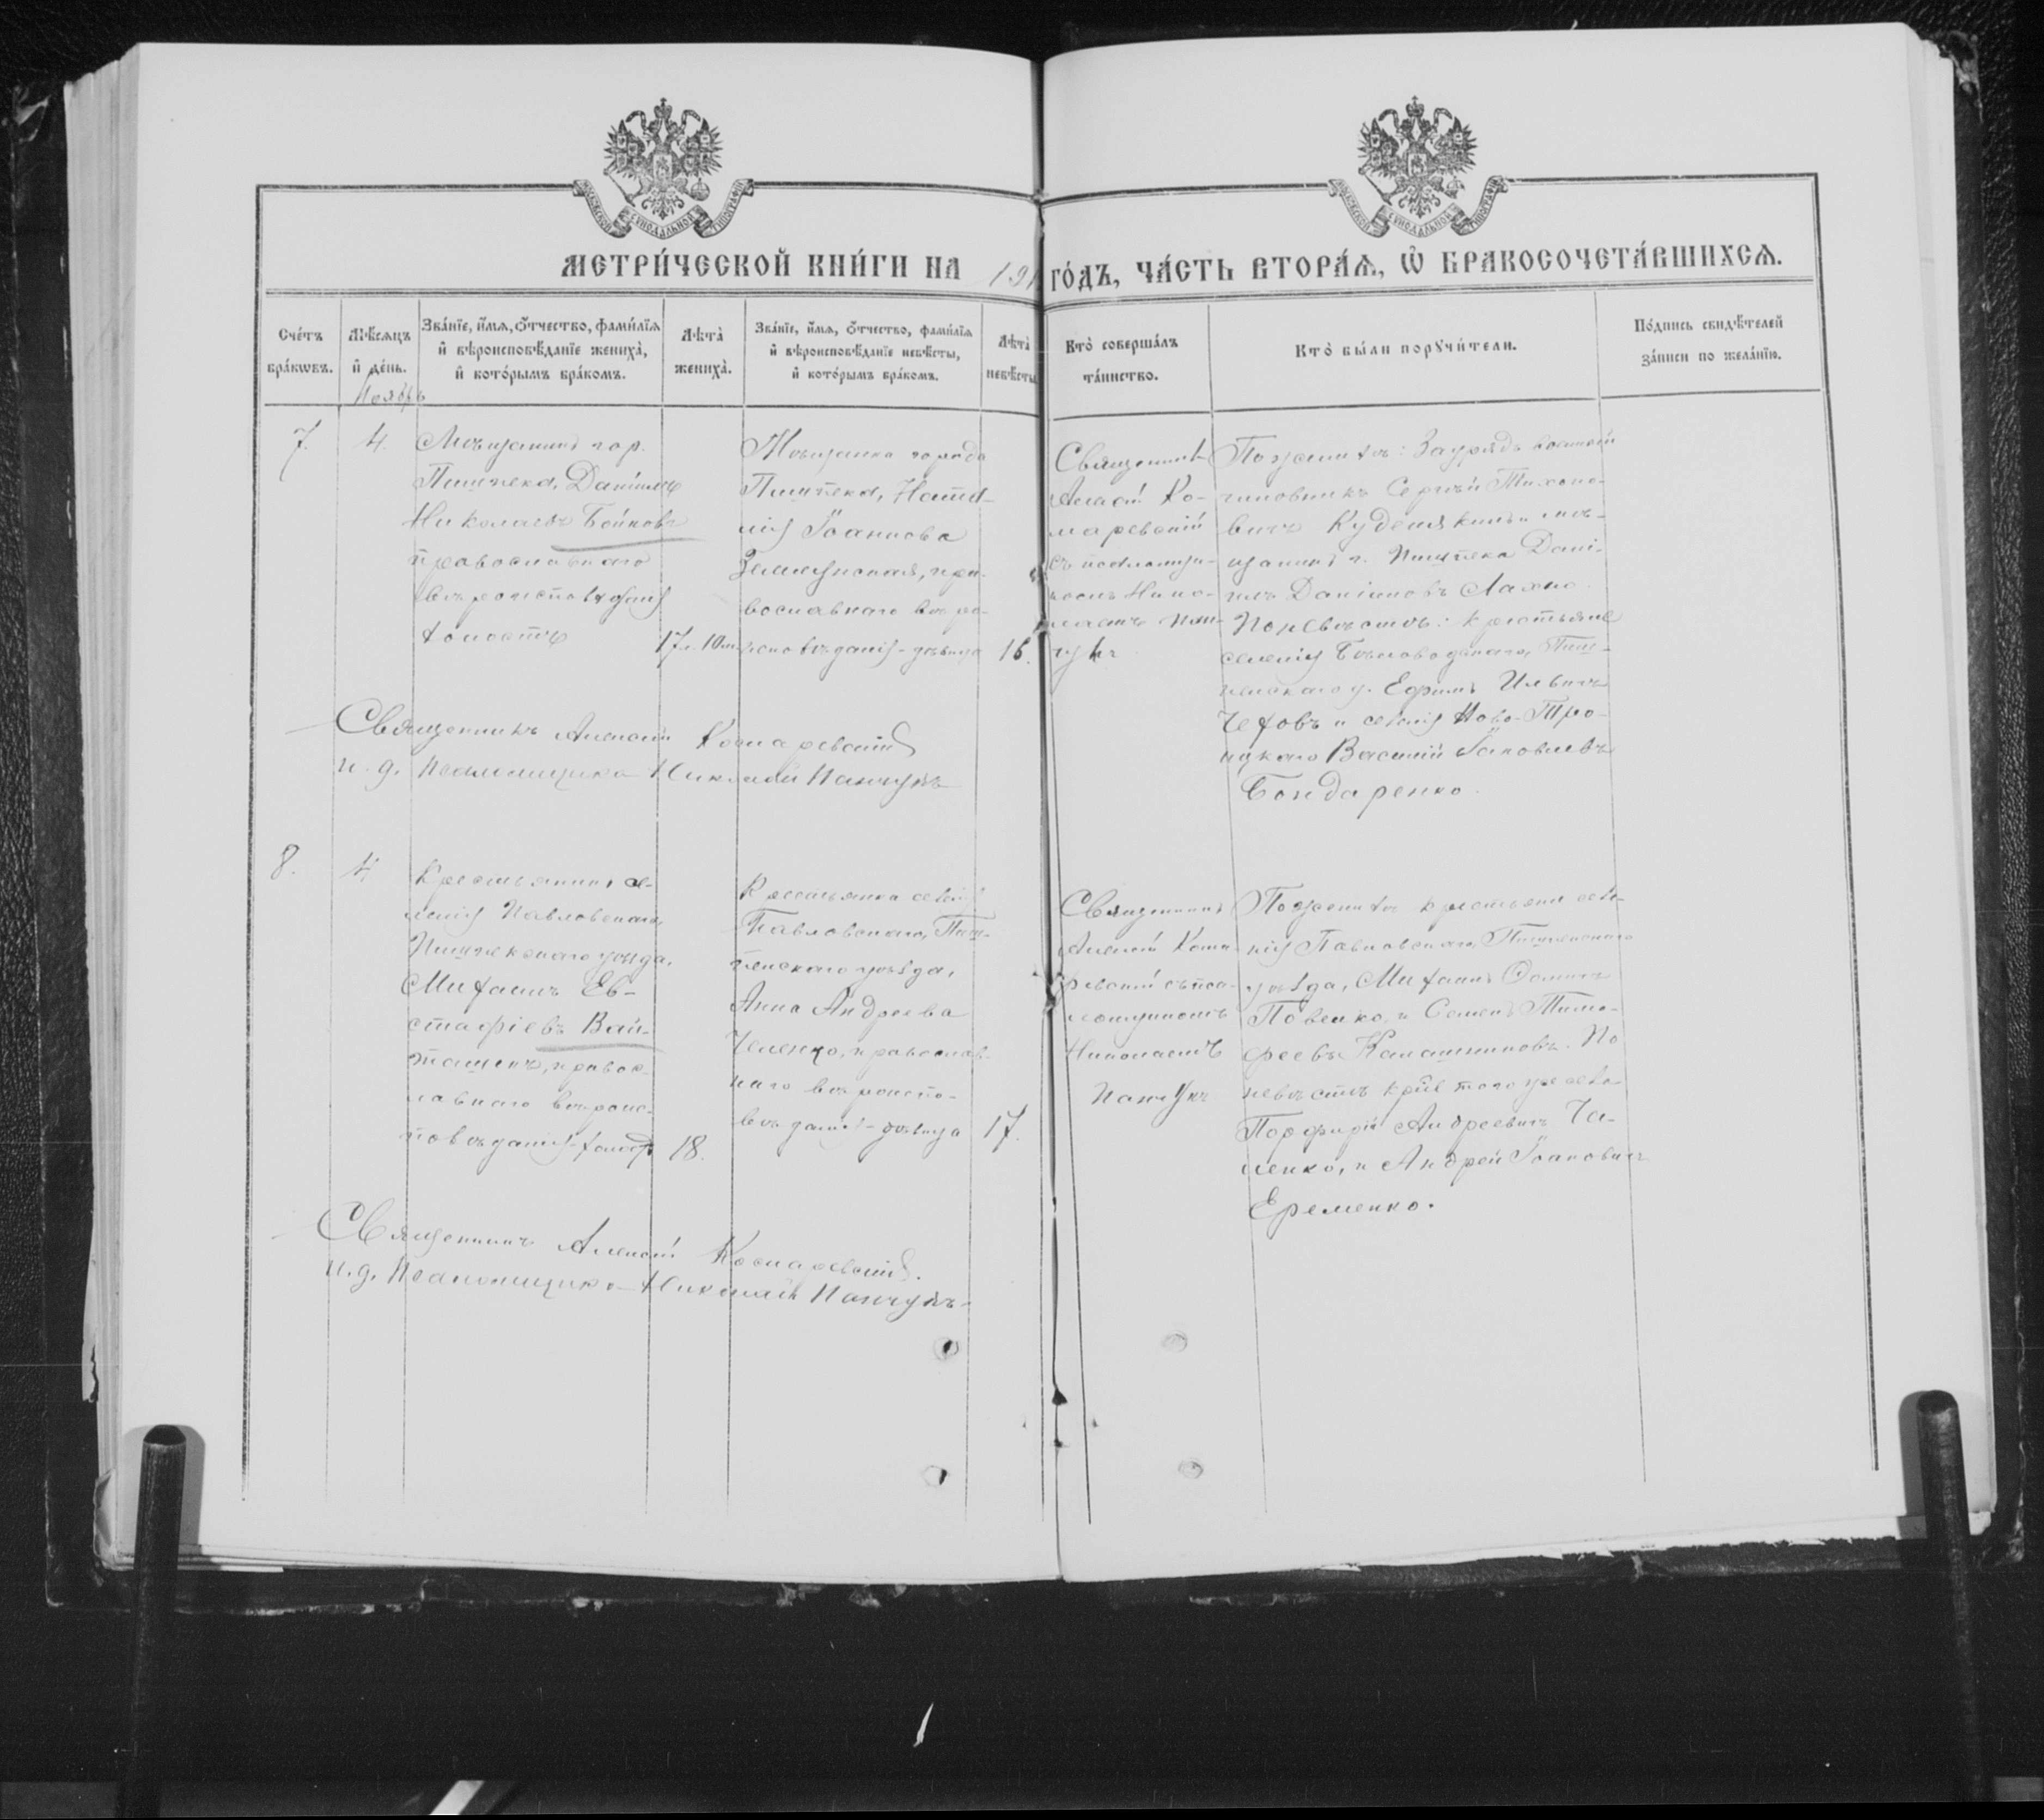 МОСКОВСКОЙ СѴНОДАЛЬНОЙ ТИПОГРАФІИ
МОСКОВСКОЙ СѴНОДАЛЬНОЙ ТИПОГРАФІИ
МЕТРИ́ЧЕСКОЙ КНИ́ГИ НА 191 ГО́ДЪ, ЧА́СТЬ ВТОРА́Я, Ѡ БРАКОСОЧЕТА́ВШИХСѦ.
Сче́тъ бра́кѡвъ.
Мѣ́сяцъ и де́нь.
Зва́нїе, и́мѧ, о́тчество, фами́лїѧ
и вѣроисповѣ́данїе жениха̀,
и кото́рымъ бра́комъ.
Лѣ̀та̀ жениха̀.
Зва́нїе, и́мѧ, о́тчество, фами́лїѧ
и вѣроисповѣ́данїе невѣ́сты,
и кото́рымъ бра́комъ.
Лѣ̀та̀ невѣ́сты
Кто̀ соверша́лъ
та́инство.
Кто̀ бы́ли порꙋчи́тели.
По́дпись свидѣ́телей
за́писи по жела́нїю.
Ноябрь
7.
4.
Мѣщанинъ гор.
Пишпека, Даніилъ
Николаевъ Бойковъ
православнаго
вѣроисповѣданія
холостъ
17 л. 10 м.
Мѣщанка города
Пишпека, Ната-
лія Іоаннова
пра-
вославнаго вѣро-
исповѣданія - дѣвица
16.
Священникъ
Алексій Ко-
маревскій
съ псаломщи-
комъ Нико-
лаемъ Пан-
чукъ
По женихѣ: Заурядъ военный
чиновникъ Сергѣй Тихоно-
вичъ Куделькинъ и мѣ-
щанинъ г. Пишпека Дані-
илъ Даніиловъ Лахно.
По невѣстѣ: крестьяне
селенія Бѣловодскаго, Пиш-
пекскаго у. Ефимъ Ильичъ
Чеховъ и селенія Ново-Тро-
ицкаго Василій Іаковлевъ
Бондаренко.
Священникъ Алексій Комаревскій
и. д. Псаломщика Николай Панчукъ
8.
4
Крестьянинъ се-
ленія Павловскаго,
Пишпекскаго уѣзда,
Михаилъ Ев-
стафіевъ Вай-
ташенъ, правос-
лавнаго вѣроис-
повѣданія, холостъ
18.
Крестьянка селенія
Павловскаго, Пиш-
пекскаго уѣзда,
Анна Андреева
православ-
наго вѣроиспо-
вѣданія - дѣвица
17.
Священникъ
Алексій Кома-
ревскій съ пса-
ломщикомъ
Николаемъ
Панчукъ
По женихѣ крестьяне селе-
нія Павловскаго, Пишпекскаго
уѣзда, Михаилъ Ѳомичъ
Повенко, и Семенъ Тимо-
феевъ Калашниковъ. По
невѣстѣ кр-не того же села
Порфирій Андреевичъ Ча-
ленко, и Андрей Іоановичъ
Еременко.
Священникъ Алексій Комаревскій.
и. д. Псаломщика Николай Панчукъ